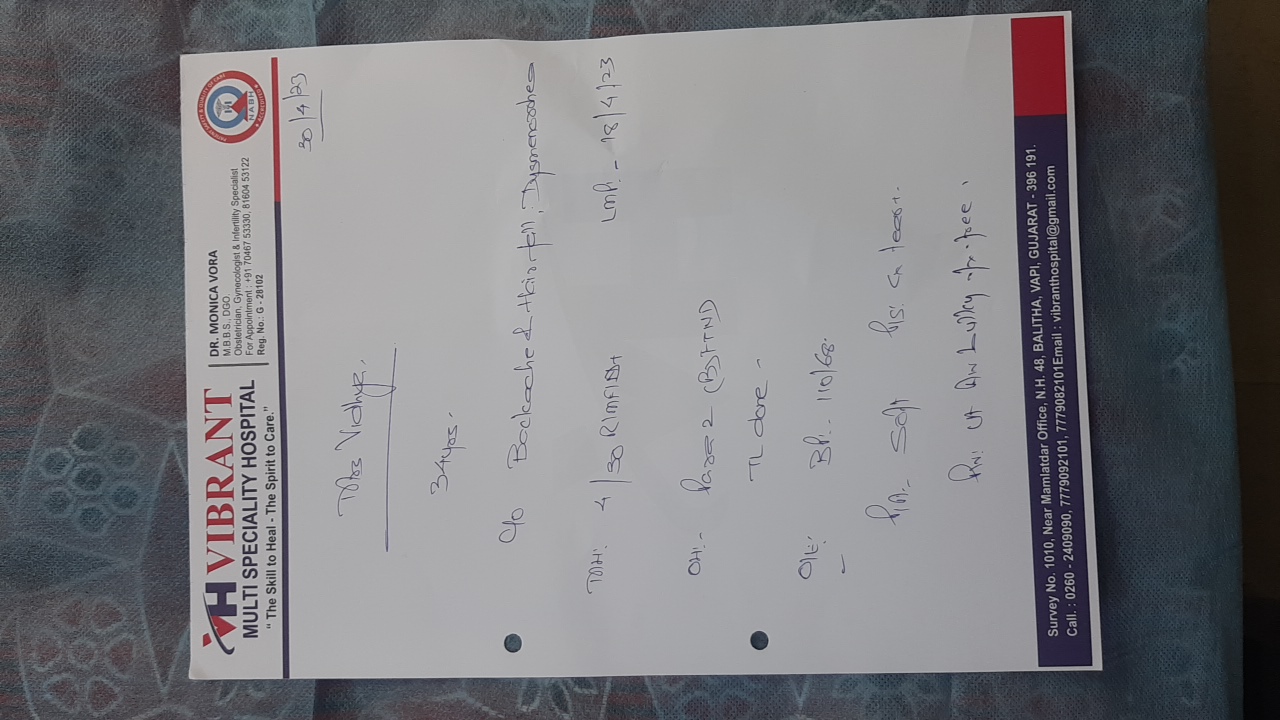 VH VIBRANT
MULTI SPECIALITY HOSPITAL
" The Skill to Heal - The Spirit to Care."
DR. MONICA VORA
M.B.B.S., DGO.
Obstetrician, Gynecologist & Infertility Specialist
For Appointment : +91 70467 53330, 81604 53122
Reg. No.: G - 28102
NABH
ACCREDITED
30/4/23
Mrs Vidhya.
34yrs.
C/o Backache & Hair fall, Dysmenorrhea
MH: 4/30 R/MF/
LMP: - 18/4/23
OH: - Para 2 FTND
TL done -
O/E:
BP: - 110/68.
P/A:- Soft P/S: Cx
P/V: Ut Bulky free.
Survey No. 1010, Near Mamlatdar Office, N.H. 48, BALITHA, VAPI, GUJARAT - 396 191.
Call. : 0260 - 2409090, 7779092101, 7779082101Email : vibranthospital@gmail.com